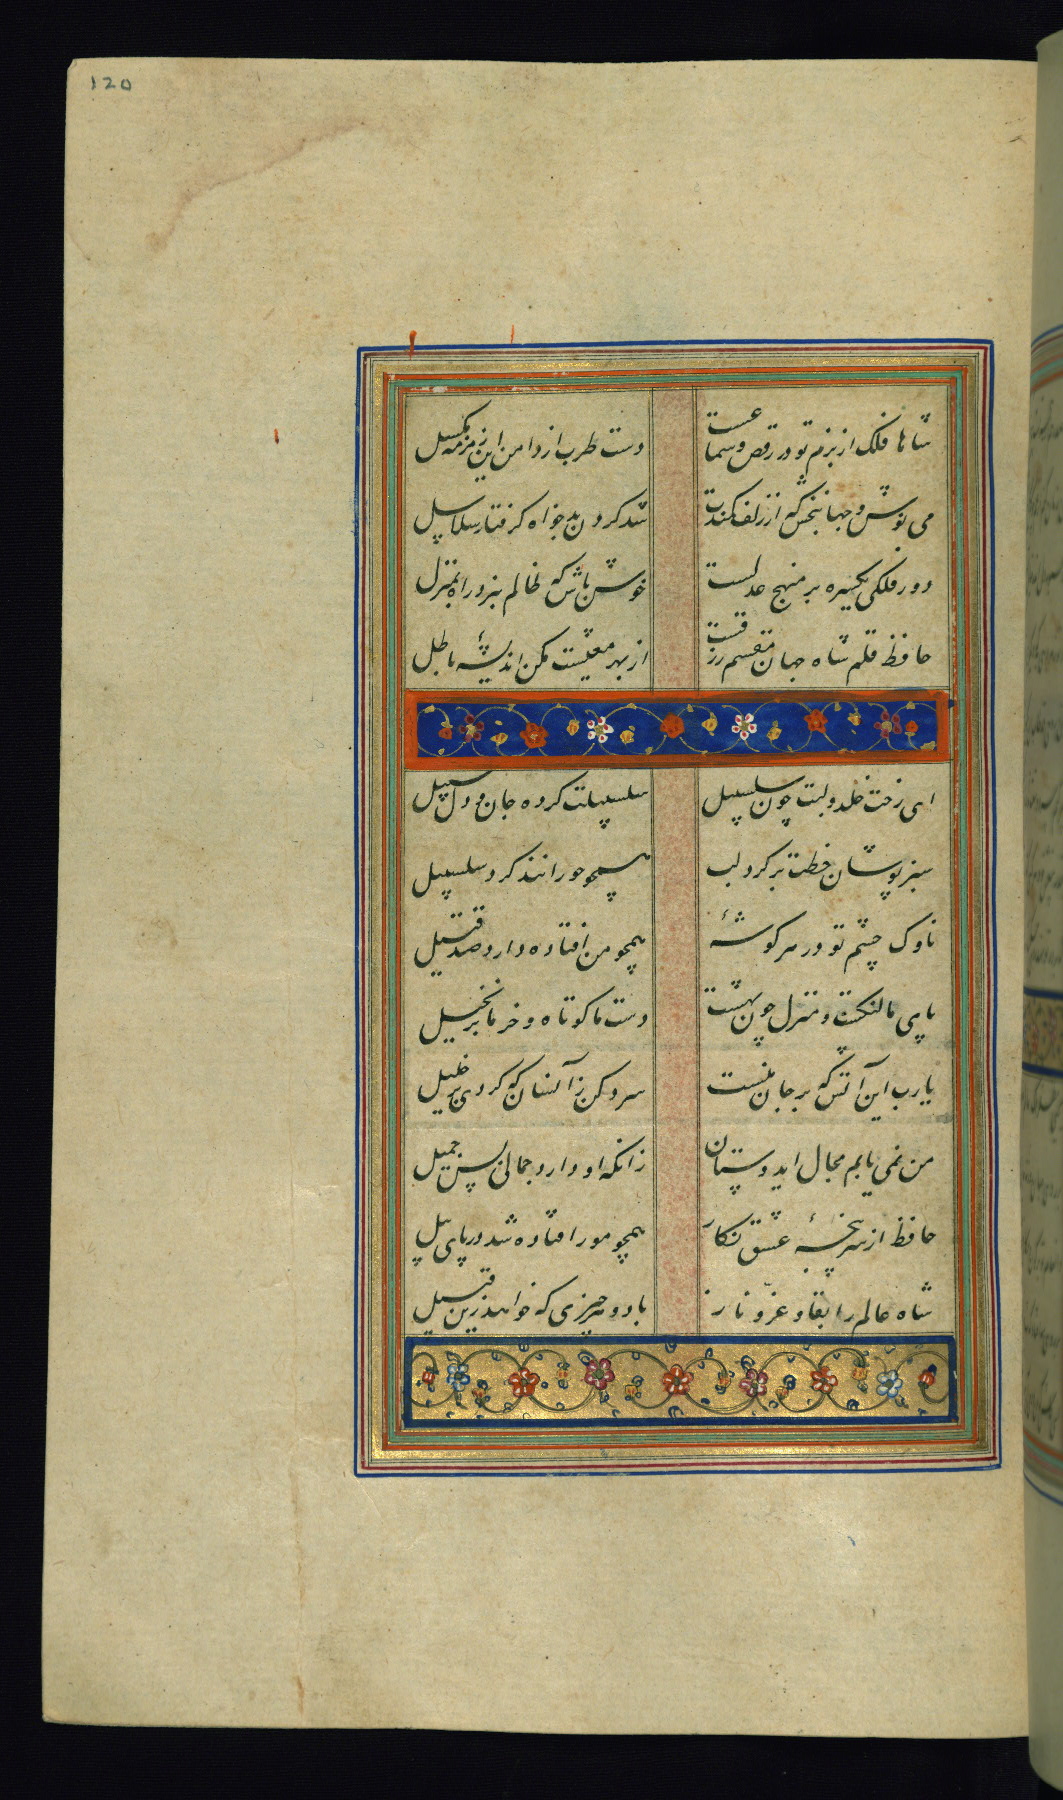 ۱۲۵
شاها فلک از بزم تو در رقص و سماعست
دست طرب از دامن این زمزمه مکسل
می نوش و جهان بخش که از زلف کمندت
شد کردن بدخواه کرفتار سلاسل
دور فلکی یکسره بر منهج عدلست
خوش باش که ظالم نبرد راه بمنزل
حافظ قلم شاه جهان مقسم رزقست
از بهر معیشت مکن اندیشهٔ باطل
ای رخت خلد و لبت چون سلسبیل
سلسبیلت کرده جان و دل سبیل
سبز پوشان خطت بر کرد لب
همچو حورانند کرد سلسبیل
ناوک چشم تو در هر کوشهٔ
همچو من افتاده دارد صد قتیل
پای ما لنکست و منزل چون بهشت
دست ما کوتاه و خرما بر نخیل
یارب این آتش که بر جان منست
سرد کن زآنسان که کردی بر خلیل
من نمی یابم مجال ای دوستان
زانکه او دارد جمالی بس جمیل
حافظ از سرپنجهٔ عشق نکار
همچو مور افتاده شد در پای پیل
شاه عالم را بقا و عز و ناز
باد و هر چیزی که خواهد زین قبیل